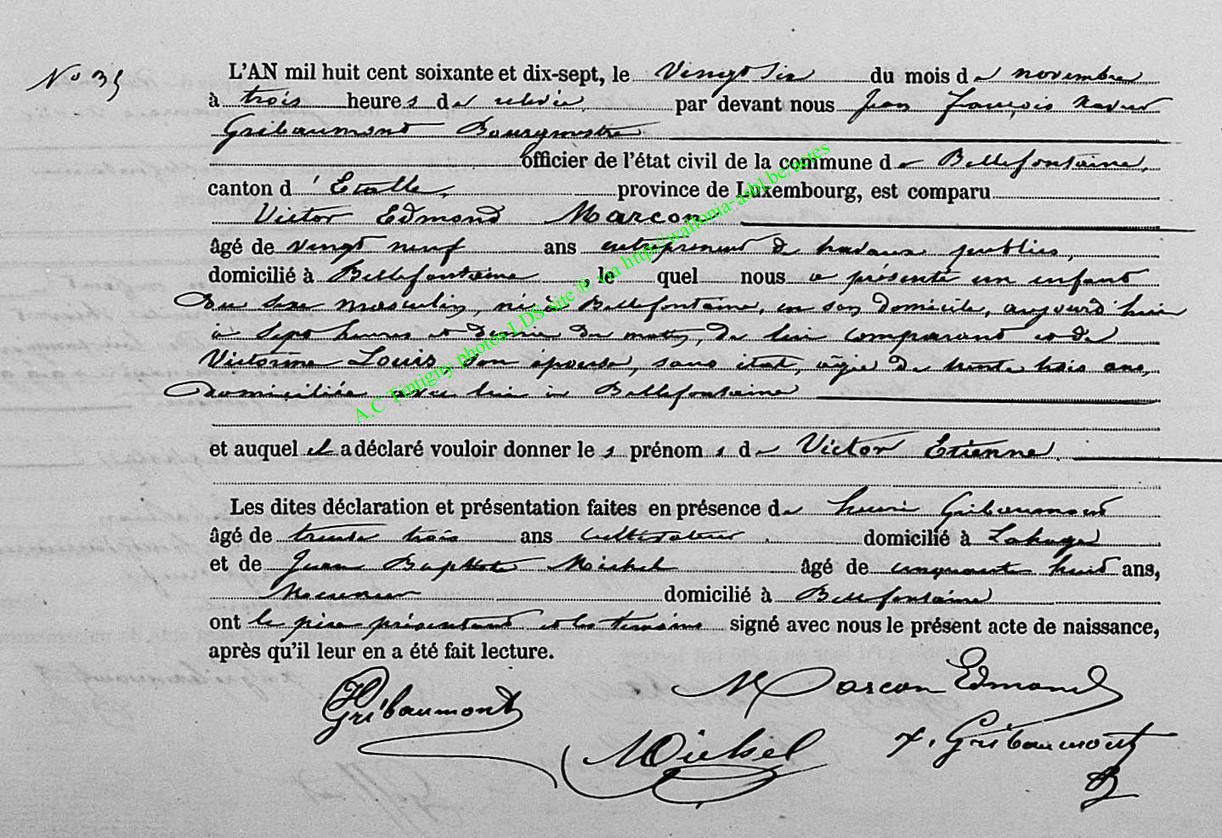 N° 35
L'AN mil huit cent soixante et dix-sept, le Vingt Six du mois de novembre
à trois heures de relevée par devant nous Jean François Xavier
Gribaumont Bourgmestre
officier de l'état civil de la commune de Bellefontaine,
canton d'Etalle, province de Luxembourg, est comparu
Victor Edmond Marcon
âgé de vingt neuf ans entrepreneur de travaux publics,
domicilié à Bellefontaine, le quel nous a présenté un enfant
du sexe masculin, né à Bellefontaine, en son domicile, aujourd'hui
à sept heures et demie du matin, de lui comparant et de
Victorine Louis son épouse, sans état, âgée de trente trois ans,
domiciliée avec lui à Bellefontaine
et auquel il a déclaré vouloir donner les prénoms de Victor Etienne.
Les dites déclaration et présentation faites en présence de henri Gribaumont
âgé de trente trois ans cultivateur domicilié à Lahage
et de Jean Baptiste Michel âgé de cinquante huit ans,
Menuisier domicilié à Bellefontaine
ont le père présentant et les témoins signé avec nous le présent acte de naissance,
après qu'il leur en a été fait lecture.
HGribaumont
Marcon Edmond
Michel
x. Gribaumont
A.C Tintigny photos LDS site © via http://wallonia-asbl.be/actes